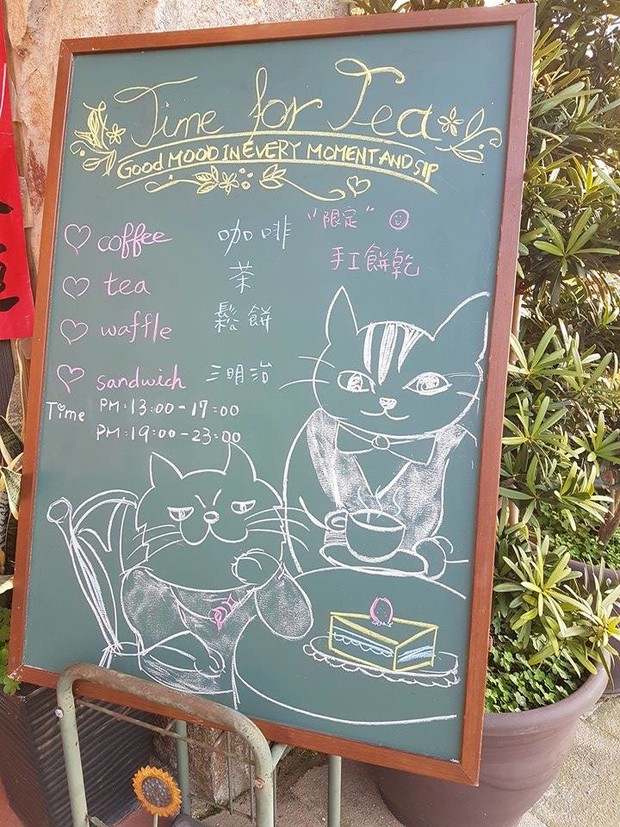 Time for Tea
GOOD MOOD IN EVERY MOMENT AND SIP
coffee 咖啡 "限定"
手工餅乾
tea 茶
waffle 鬆餅
sandwich 三明治
Time PM:13:00-17:00
PM:19:00-23:00